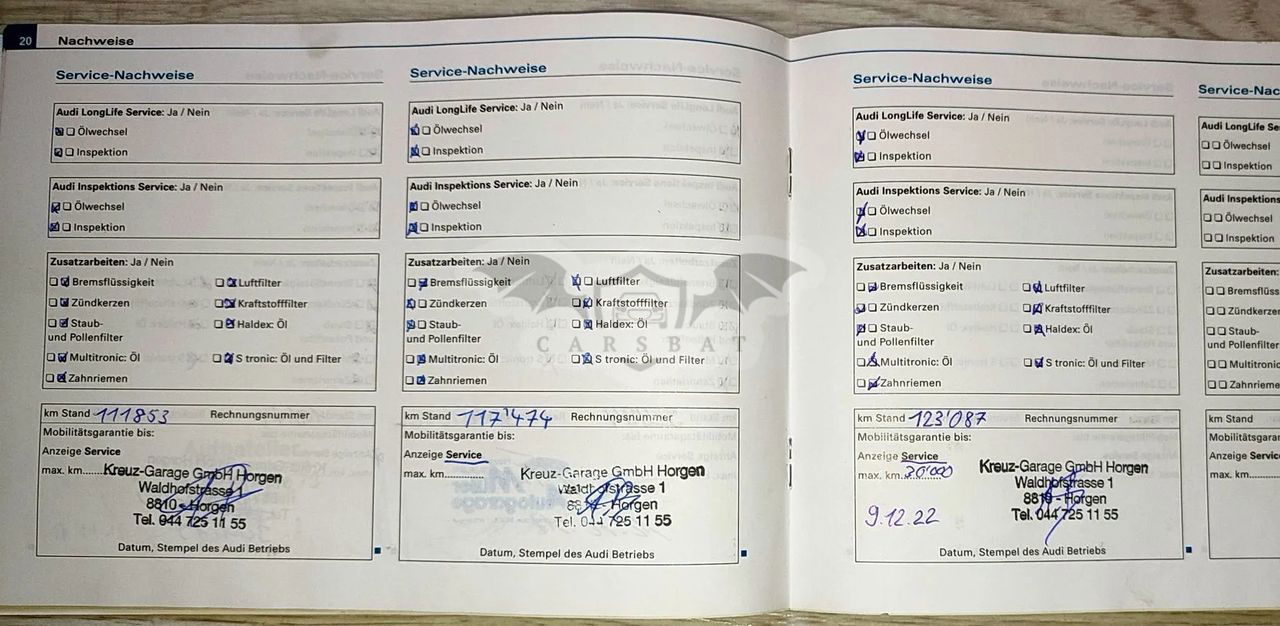 20 Nachweise
Service-Nachweise
Audi LongLife Service: Ja / Nein
Ölwechsel
Inspektion
Audi Inspektions Service: Ja / Nein
Ölwechsel
Inspektion
Zusatzarbeiten: Ja / Nein
Bremsflüssigkeit Luftfilter
Zündkerzen Kraftstofffilter
Staub- Haldex: Öl
und Pollenfilter
Multitronic: Öl S tronic: Öl und Filter
Zahnriemen
km Stand 111853 Rechnungsnummer
Mobilitätsgarantie bis:
Anzeige Service
max. km......
Kreuz-Garage GmbH Horgen
Waldhofstrasse 1
8810 - Horgen
Tel. 044 725 11 55
Datum, Stempel des Audi Betriebs
Service-Nachweise
Audi LongLife Service: Ja / Nein
Ölwechsel
Inspektion
Audi Inspektions Service: Ja / Nein
Ölwechsel
Inspektion
Zusatzarbeiten: Ja / Nein
Bremsflüssigkeit Luftfilter
Zündkerzen Kraftstofffilter
Staub- Haldex: Öl
und Pollenfilter
Multitronic: Öl S tronic: Öl und Filter
Zahnriemen
km Stand 117'474 Rechnungsnummer
Mobilitätsgarantie bis:
Anzeige Service
max. km............
Kreuz-Garage GmbH Horgen
Waldhofstrasse 1
8810 - Horgen
Tel. 044 725 11 55
Datum, Stempel des Audi Betriebs
CARSBAT
Service-Nachweise
Audi LongLife Service: Ja / Nein
Ölwechsel
Inspektion
Audi Inspektions Service: Ja / Nein
Ölwechsel
Inspektion
Zusatzarbeiten: Ja / Nein
Bremsflüssigkeit Luftfilter
Zündkerzen Kraftstofffilter
Staub- Haldex: Öl
und Pollenfilter
Multitronic: Öl S tronic: Öl und Filter
Zahnriemen
km Stand 123'087 Rechnungsnummer
Mobilitätsgarantie bis:
Anzeige Service
max. km 30'000
9.12.22
Kreuz-Garage GmbH Horgen
Waldhofstrasse 1
8810 - Horgen
Tel. 044 725 11 55
Datum, Stempel des Audi Betriebs
Service-Nac
Audi LongLife Se
Ölwechsel
Inspektion
Audi Inspektions
Ölwechsel
Inspektion
Zusatzarbeiten:
Bremsflüss
Zündkerze
Staub-
und Pollenfilter
Multitronic
Zahnrieme
km Stand
Mobilitätsgaran
Anzeige Service
max. km